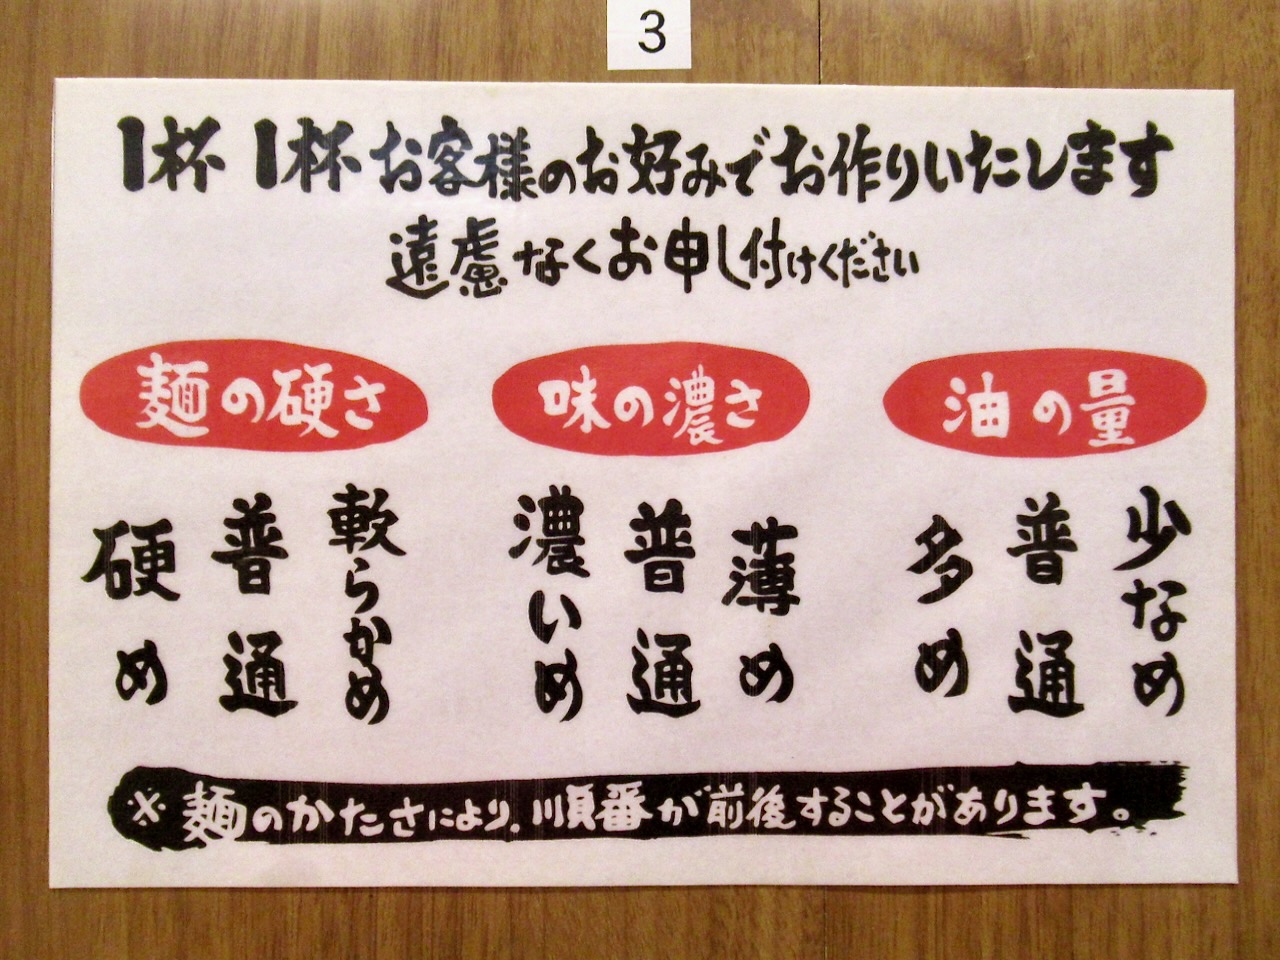 3
1杯1杯お客様のお好みでお作りいたします
遠慮なくお申し付けください
麺の硬さ
硬め
普通
軟らかめ
味の濃さ
濃いめ
普通
薄め
油の量
多め
普通
少なめ
※麺のかたさにより、順番が前後することがあります。